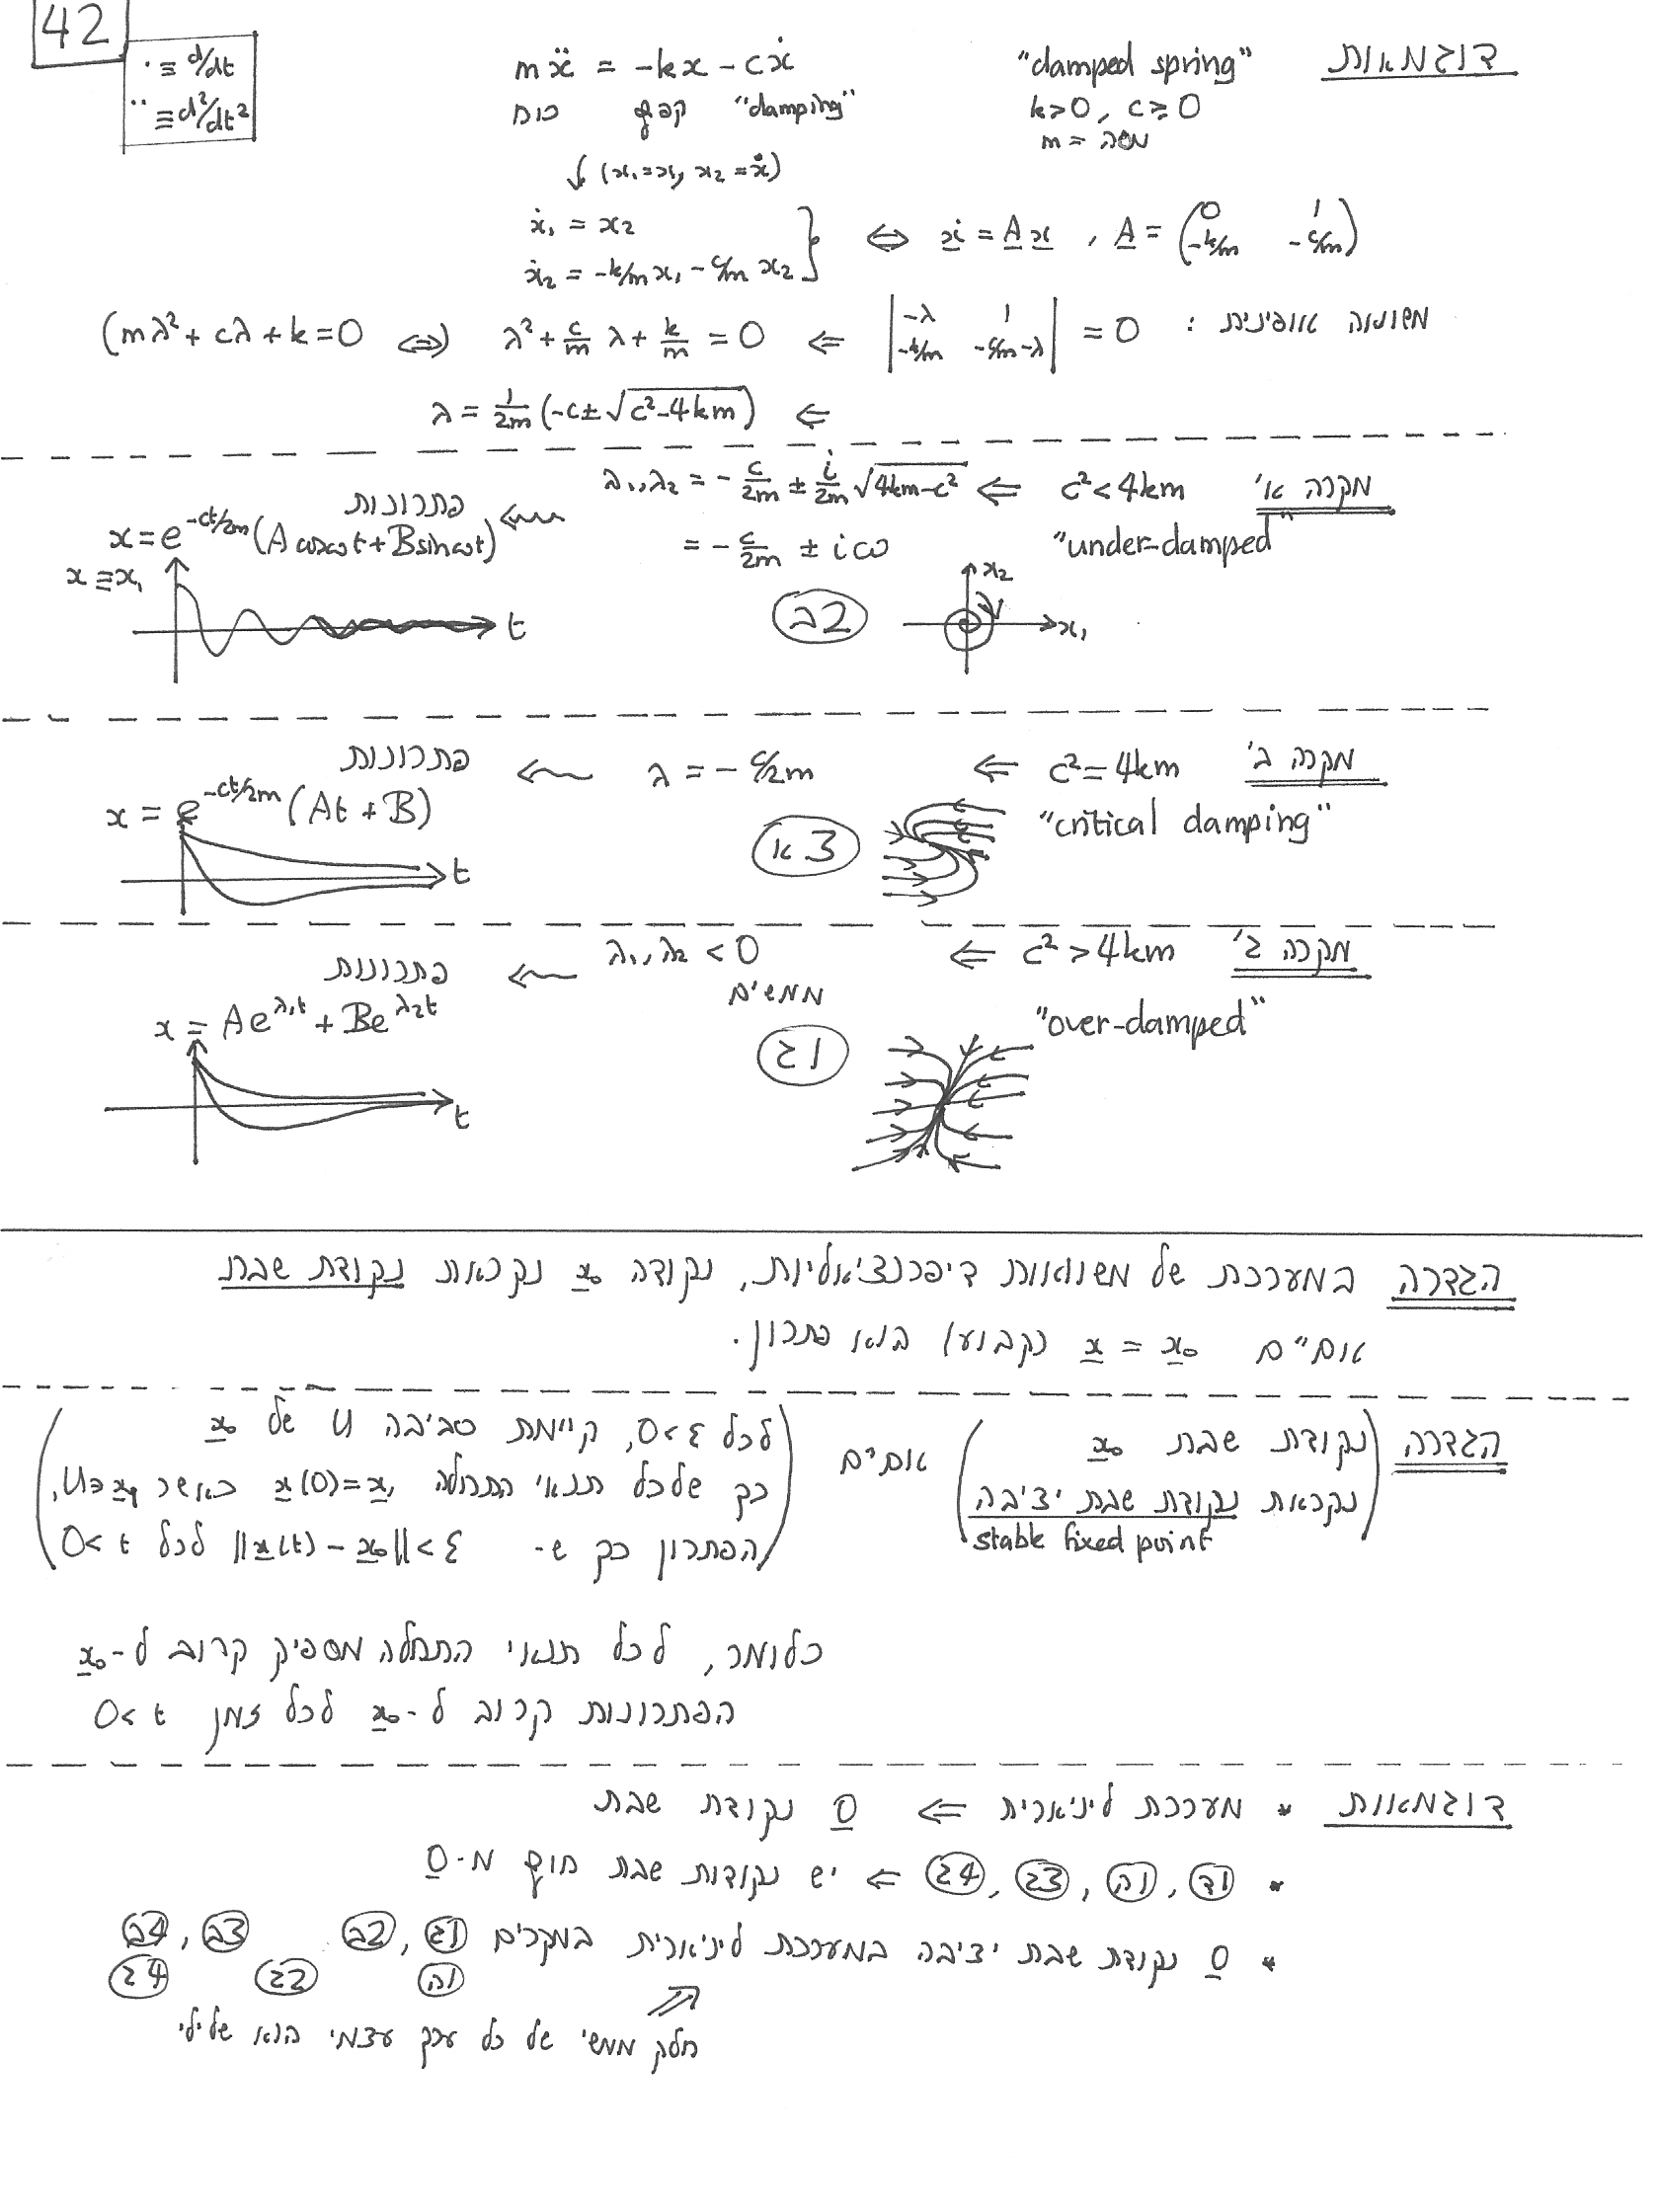 42
· ≡ d/dt
·· ≡ d²/dt²
דוגמאות "damped spring" mẍ = -kx - cẋ
k>0, c≥0
m = מסה
כוח קפיץ "damping"
↓ (x₁=x, x₂=ẋ)
ẋ₁ = x₂
ẋ₂ = -k/m x₁ - c/m x₂
⇔ ẋ = A x , A = (0 1 / -k/m -c/m)
משוואה אופינית : |-λ 1 / -k/m -c/m-λ| = 0 ⇐ λ² + c/m λ + k/m = 0 ⇔ (mλ² + cλ + k = 0
⇐ λ = 1/2m (-c ± √c²-4km)
מקרה א' c² < 4km ⇐ λ₁,λ₂ = - c/2m ± i/2m √4km-c²
"under-damped" = - c/2m ± iω
פתרונות
x = e^-ct/2m (A cosωt + B sinωt)
x ≡ x₁
t
2ב
x₂
x₁
מקרה ב' c² = 4km ⇐ λ = - c/2m פתרונות
"critical damping"
x = e^-ct/2m (At + B)
3א
t
מקרה ג' c² > 4km ⇐ λ₁,λ₂ < 0 פתרונות
ממשיים
"over-damped"
x = Ae^λ₁t + Be^λ₂t
1ג
t
הגדרה במערכת של משוואות דיפרנציאליות, נקודה x₀ נקראת נקודת שבת
אם"ם x = x₀ (קבוע) הוא פתרון.
הגדרה (נקודת שבת x₀
נקראת נקודת שבת יציבה)
stable fixed point
אם"ם
(לכל 0<ε, קיימת סביבה U של x₀
כך שלכל תנאי התחלה x(0)=x₁ כאשר x₁⊂U,
הפתרון כך ש- ||x(t) - x₀|| < ε לכל 0<t)
כלומר, לכל תנאי התחלה מספיק קרוב ל-x₀
הפתרונות קרוב ל-x₀ לכל זמן 0<t
דוגמאות * מערכת ליניארית ⇐ 0 נקודת שבת
* 1ד, 1ה, 3ג, 4ג ⇐ יש נקודות שבת חוץ מ-0
* 0 נקודת שבת יציבה במערכת ליניארית במקרים 1ג, 2ב 3ב, 4ב
1ה 2ג 4ג
חלק ממשי של כל ערך עצמי הוא שלילי